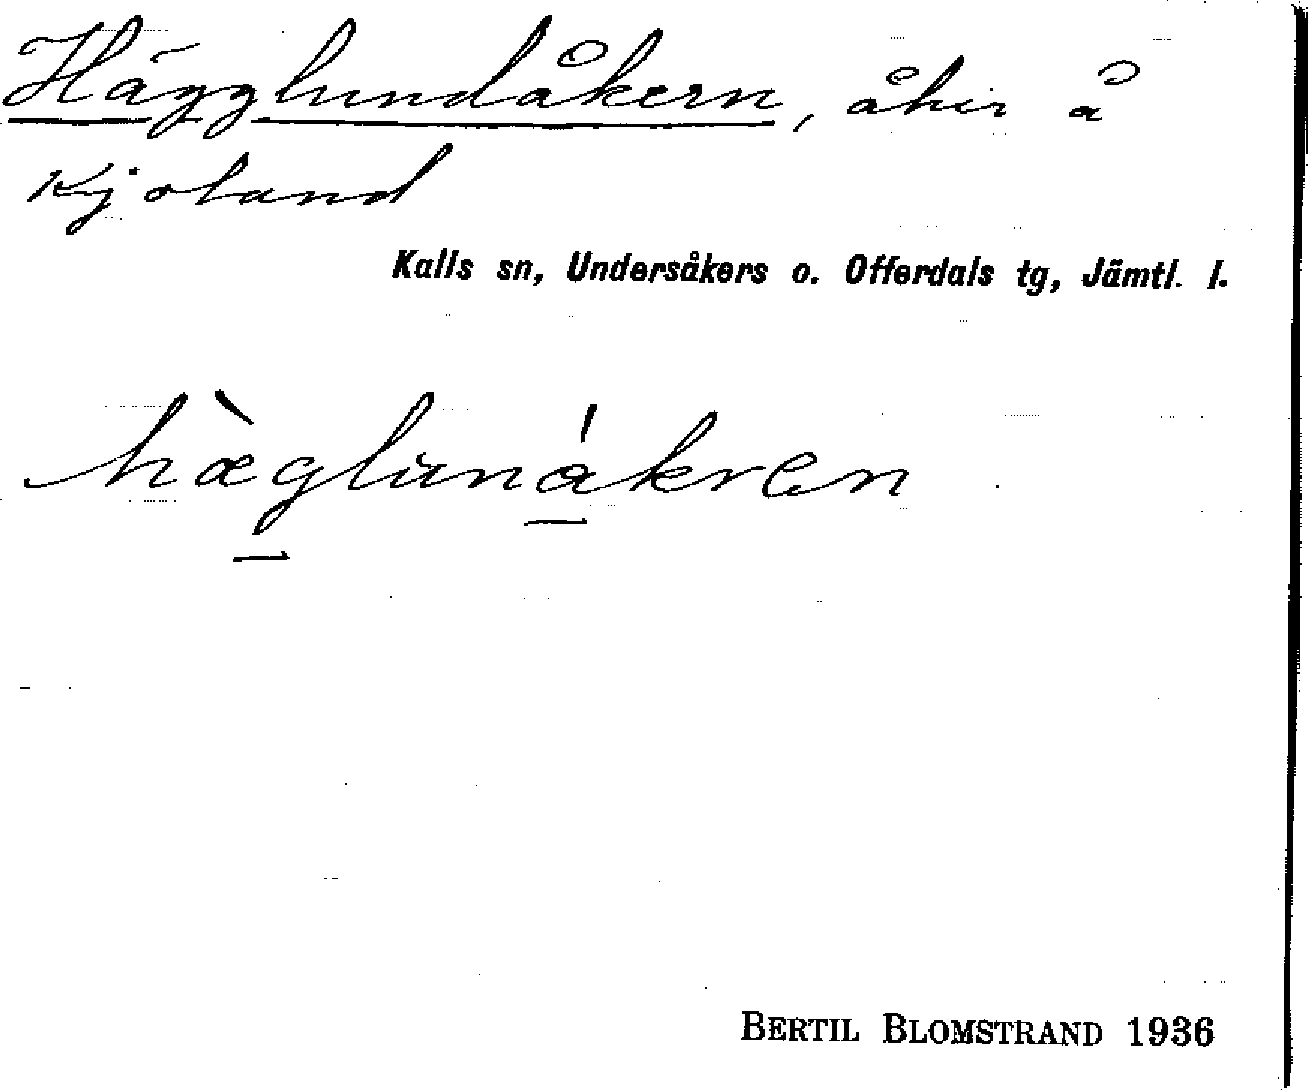 Hägglundåkern, åker å
Kjoland
Kalls sn, Undersåkers o. Offerdals tg, Jämtl. l.
hæ̀glunákren
BERTIL BLOMSTRAND 1936